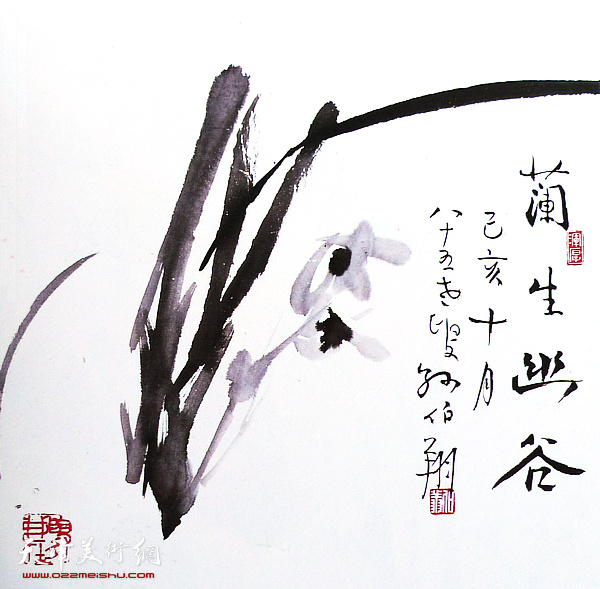 蘭生幽谷
己亥十月
八十五老叟孙伯翔
天津美術網
www.022meishu.com